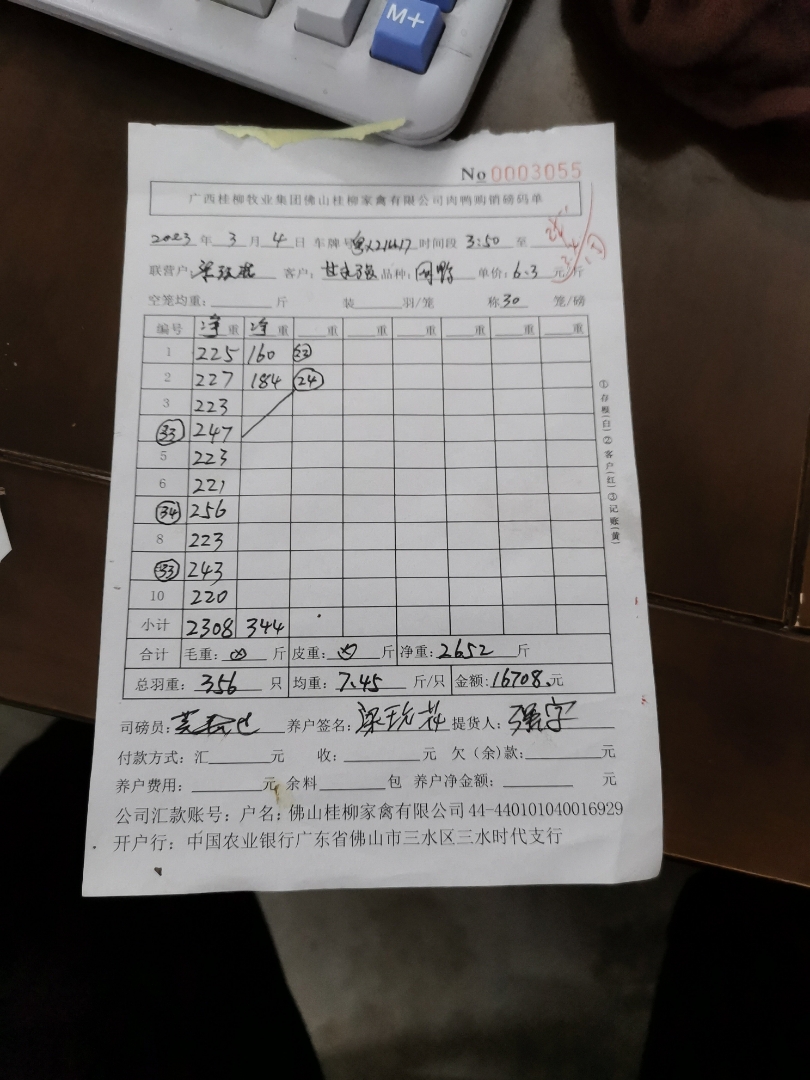 M+
No 0003055
广西桂柳牧业集团佛山桂柳家禽有限公司肉鸭购销磅码单
2023 年 3 月 4 日 车牌号 时间段 3:50 至
联营户: 客户: 品种: 单价: 6.3 元/斤
空笼均重: 斤 装 羽/笼 称 30 笼/磅
编号 净重 净重 重 重 重 重 重 重
1 225 160 23
2 227 184 24
3 223
33 247
5 223
6 221
34 256
8 223
33 243
10 220
小计 2308 344
合计 毛重: 斤 皮重: 斤 净重: 2652 斤
总羽重: 356 只 均重: 7.45 斤/只 金额: 16708 元
司磅员: 养户签名: 提货人:
付款方式: 汇 元 收: 元 欠(余)款: 元
养户费用: 元 余料 包 养户净金额: 元
公司汇款账号: 户名: 佛山桂柳家禽有限公司 44-440101040016929
开户行: 中国农业银行广东省佛山市三水区三水时代支行
①存根(白)②客户(红)③记账(黄)